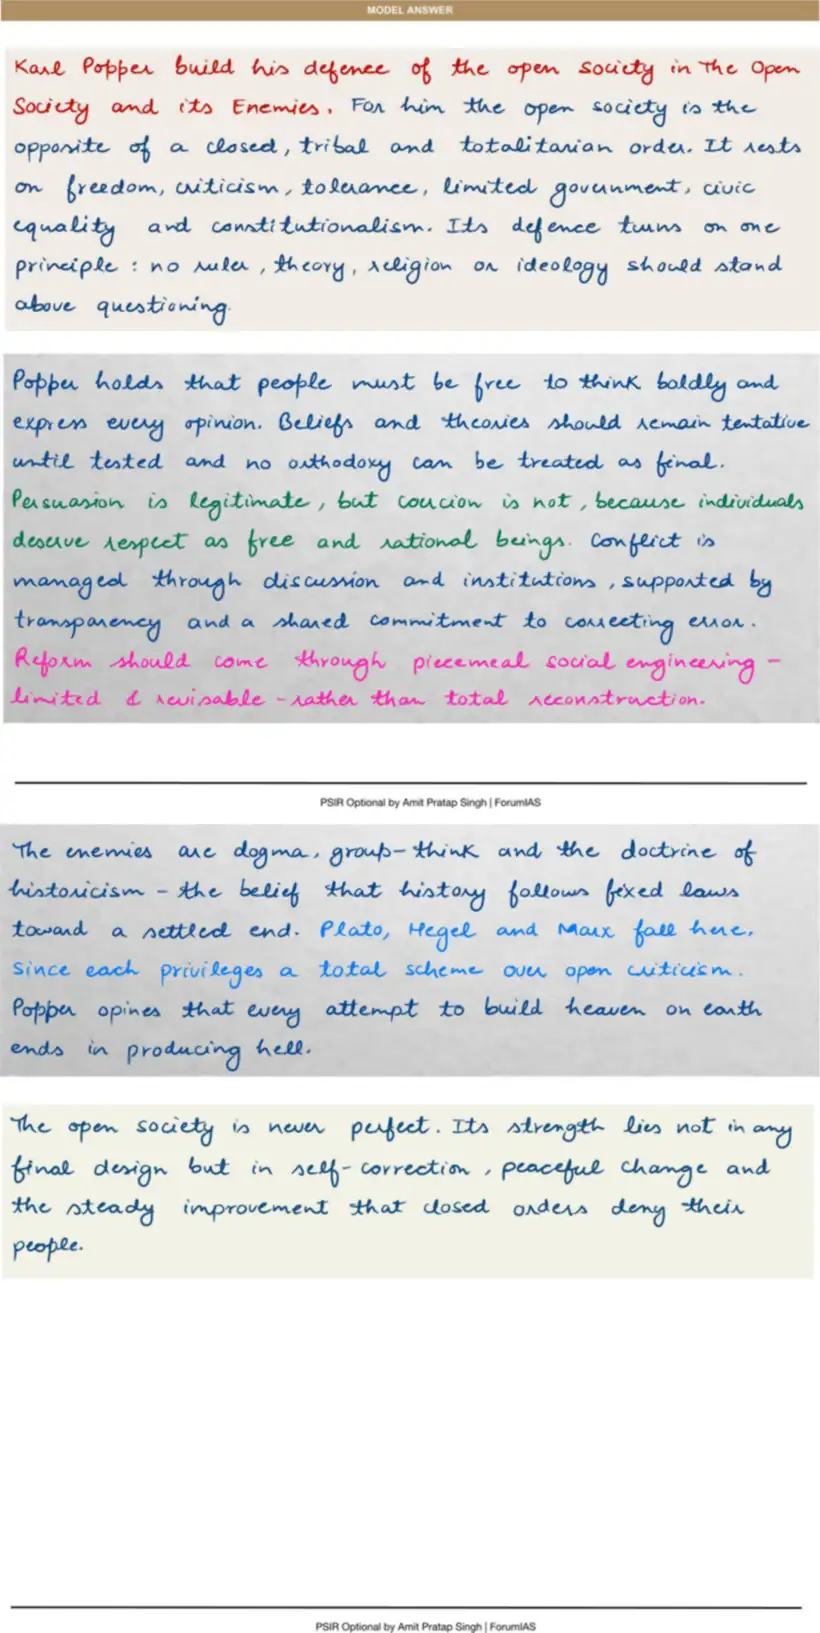 MODEL ANSWER
Karl Popper build his defence of the open society in The Open
Society and its Enemies. For him the open society is the
opposite of a closed, tribal and totalitarian order. It rests
on freedom, criticism, tolerance, limited government, civic
equality and constitutionalism. Its defence turns on one
principle : no ruler, theory, religion or ideology should stand
above questioning.
Popper holds that people must be free to think boldly and
express every opinion. Beliefs and theories should remain tentative
until tested and no orthodoxy can be treated as final.
Persuasion is legitimate, but coercion is not, because individuals
deserve respect as free and rational beings. Conflict is
managed through discussion and institutions, supported by
transparency and a shared commitment to correcting error.
Reform should come through piecemeal social engineering -
limited & revisable - rather than total reconstruction.
PSIR Optional by Amit Pratap Singh | ForumIAS
The enemies are dogma, group-think and the doctrine of
historicism - the belief that history follows fixed laws
toward a settled end. Plato, Hegel and Marx fall here,
since each privileges a total scheme over open criticism.
Popper opines that every attempt to build heaven on earth
ends in producing hell.
The open society is never perfect. Its strength lies not in any
final design but in self-correction, peaceful change and
the steady improvement that closed orders deny their
people.
PSIR Optional by Amit Pratap Singh | ForumIAS